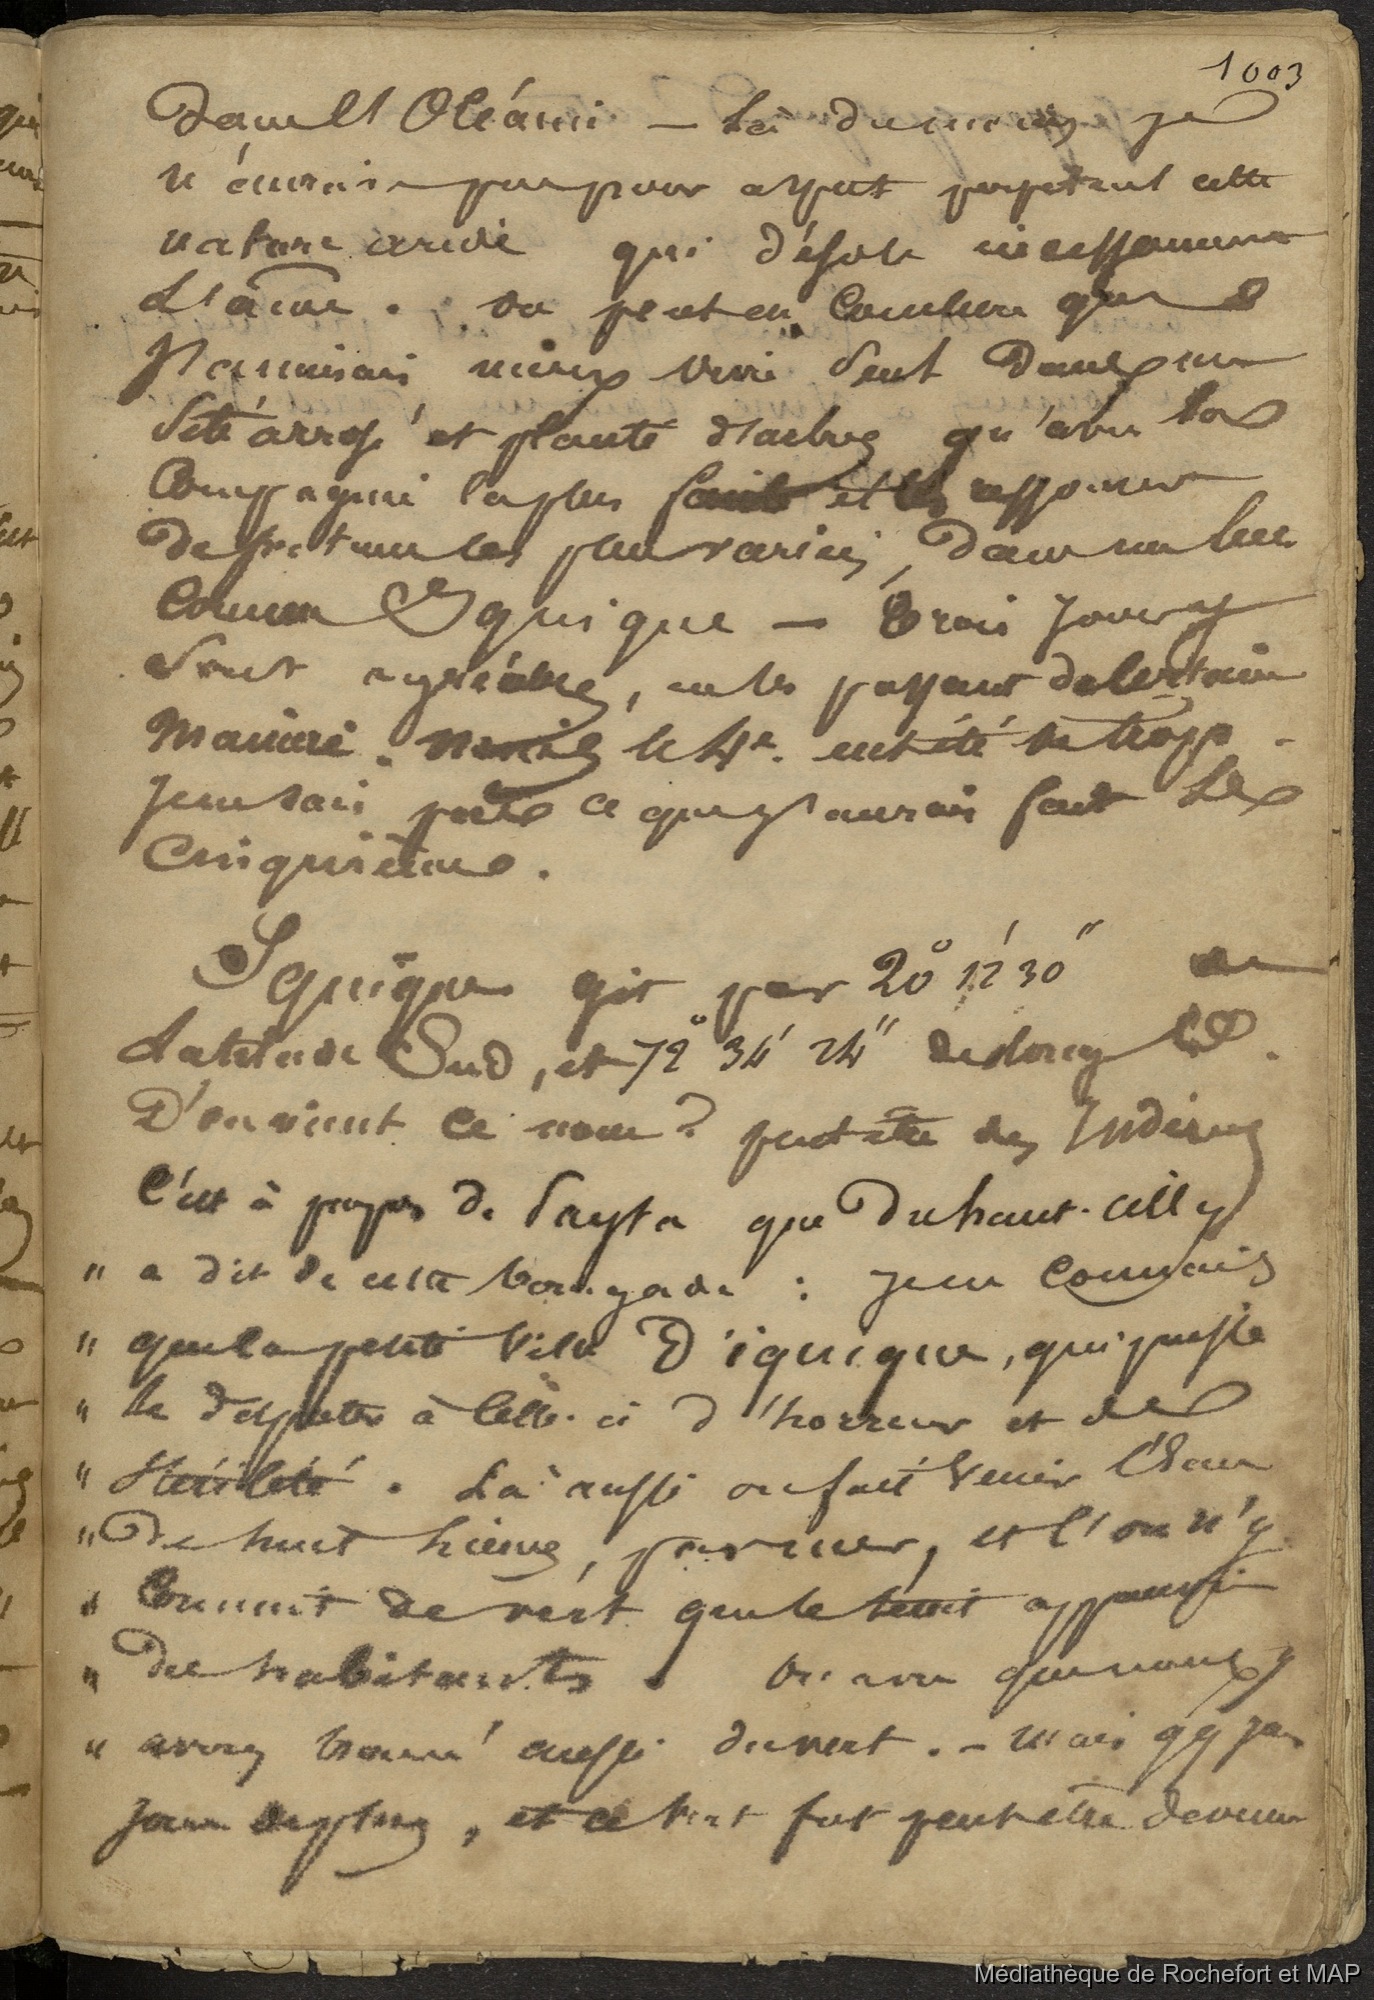 1003
dans l'Océanie — Là du moins je
n'aurais pas pour aspect perpétuel cette
nature aride qui désole incessamment
L'âme. on peut en conclure que
J'aimerais mieux vivre seul dans un
site arrosé et planté d'arbres qu'avec la
Compagnie la plus et les ressources
de spectacles plus variés, dans un lieu
comme Iquique — trois jours y
sont agréables, en les passant de certaine
manière. mais le 4e. eut été de trop -
Je ne sais pas ce que j'aurais fait le
Cinquième.
Iquique git par 20° 12' 30" de
Latitude Sud, et 72° 34' 24" de long
D'ou vient ce nom? peut être des Indiens
C'est à propos de Payta que Duhaut-cilly
" a dit de cette bourgade : Je ne connais
" que la petite ville D'iquique, qui puisse
" le disputer à celle-ci d'horreur et de
" stérilité. Là aussi on fait venir l'Eau
" De huit lieues, par mer, et l'on n'y
" Connait de vert que le teint
" Des habitants. on a vu que nous y
" avons trouvé aussi du vert. - mais qq jours
Jours de plus, et ce vert fut peut être devenu
Médiathèque de Rochefort et MAP